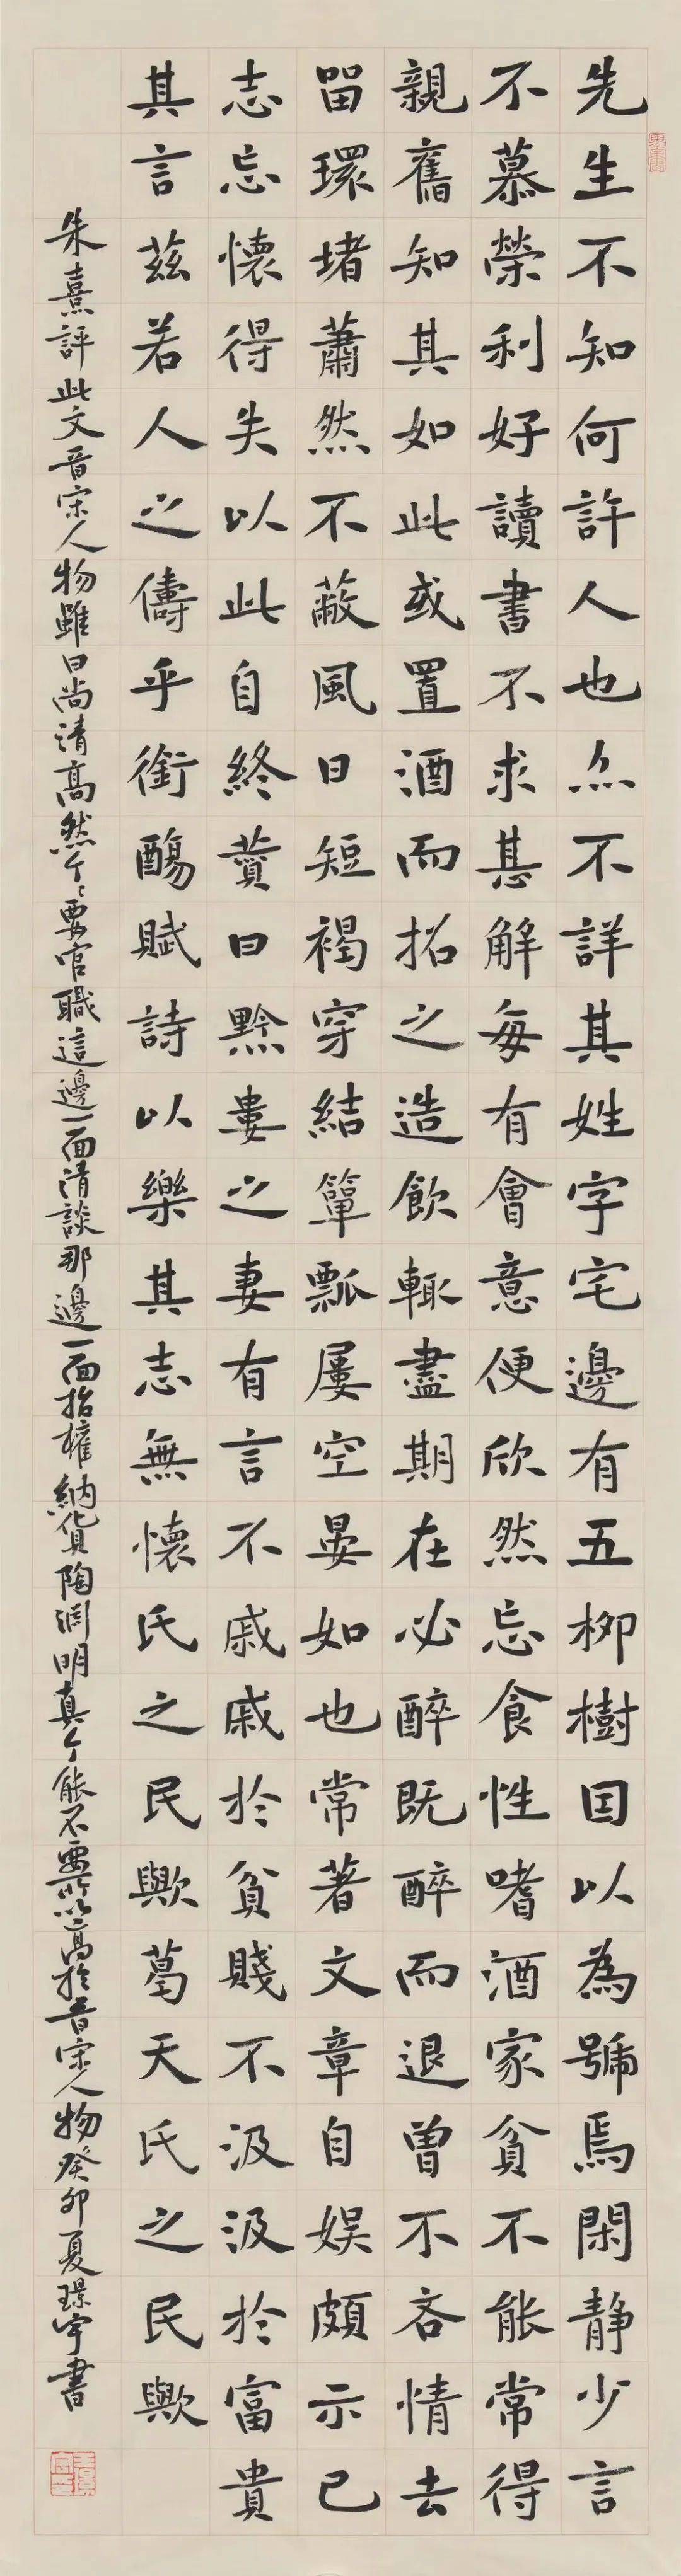 先生不知何許人也亦不詳其姓字宅邊有五柳樹因以為號焉閑靜少言
不慕榮利好讀書不求甚解每有會意便欣然忘食性嗜酒家貧不能常得
親舊知其如此或置酒而招之造飲輒盡期在必醉既醉而退曾不吝情去
留環堵蕭然不蔽風日短褐穿結簞瓢屢空晏如也常著文章自娛頗示己
志忘懷得失以此自終贊曰黔婁之妻有言不戚戚於貧賤不汲汲於富貴
其言茲若人之儔乎銜觴賦詩以樂其志無懷氏之民歟葛天氏之民歟
朱熹評此文晉宋人物雖曰尚清高然个々要官職這邊一面清談那邊一面招權納貨陶淵明真个能不要所以高於晉宋人物癸卯夏璟宇書